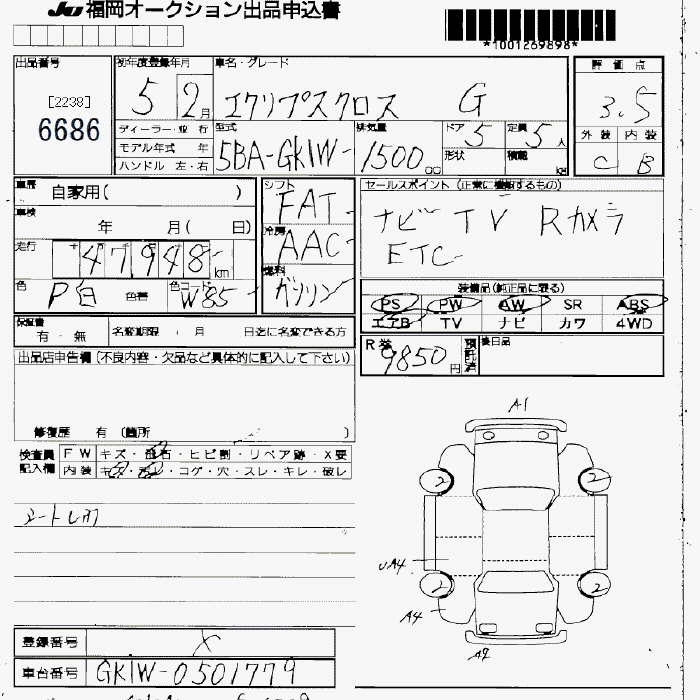 JU 福岡オークション出品申込書
*1001269898*
出品番号
[2238]
6686
初年度登録年月
5 2月
車名・グレード
エクリプスクロス G
評価点
3.5
外装 内装
C B
ディーラー・並行
モデル年式 年
ハンドル 左・右
型式
5BA-GK1W-
排気量
1500 cc
ドア 5
形状
定員 5人
積載 kg
車歴 自家用( )
車検 年 月( 日)
走行 47948 km
色 P白 色替 色コード W85
シフト FAT
冷房 AAC
燃料 ガソリン
セールスポイント (正常に機能するもの)
ナビ TV Rカメラ
ETC
装備品(純正品に限る)
PS PW AW SR ABS
エアB TV ナビ カワ 4WD
保証書 有・無
名変期限 月 日迄に名変できる方
R券 9850円 預託済
後日品
出品店申告欄(不良内容・欠品など具体的に記入して下さい)
修復歴 有 (箇所 )
検査員記入欄
FW キズ・飛石・ヒビ割・リペア跡・X要
内装 キズ・汚れ・コゲ・穴・スレ・キレ・破レ
A1
2 2
UA4
2 2
A4
A2
登録番号 X
車台番号 GK1W-0501779